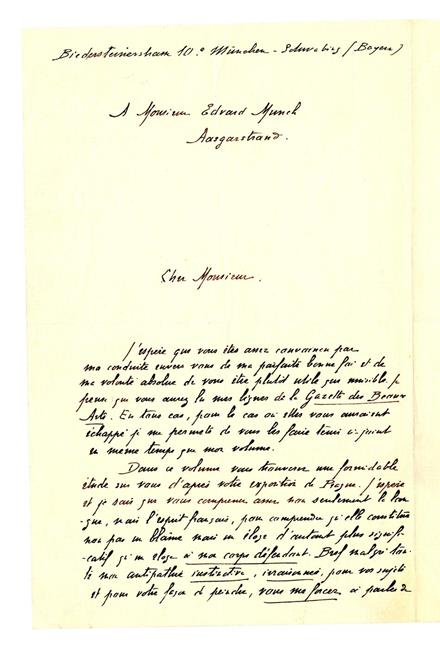 Biedersteinersham 10.° München - Schwabing (Bayern)
A Monsieur Edvard Munch
Aasgarstrand.
Cher Monsieur.
J'espère que vous êtes assez convaincu par
ma conduite envers vous de ma parfaite bonne foi et de
ma volonté absolue de vous être plutôt utile que nuisible. Je
pense que vous aurez lu mes lignes de la Gazette des Beaux
Arts. En tous cas, pour le cas où elles vous auraient
échappé je me permets de vous les faire tenir ci-joint
en même temps que mon volume.
Dans ce volume vous trouverez une formidable
étude sur vous d'après votre exposition de Prague. J'espère
et je sais que vous comprenez assez non seulement la lan-
-gue, mais l'esprit français, pour comprendre qu'elle constitue
non pas un blâme mais un éloge d'autant plus signifi-
-catif qu'un éloge à mon corps défendant. Bref malgré tou-
-te mon antipathie instinctive, irraisonnée, pour vos sujets
et pour votre façon de peindre, vous me forcez à parler de